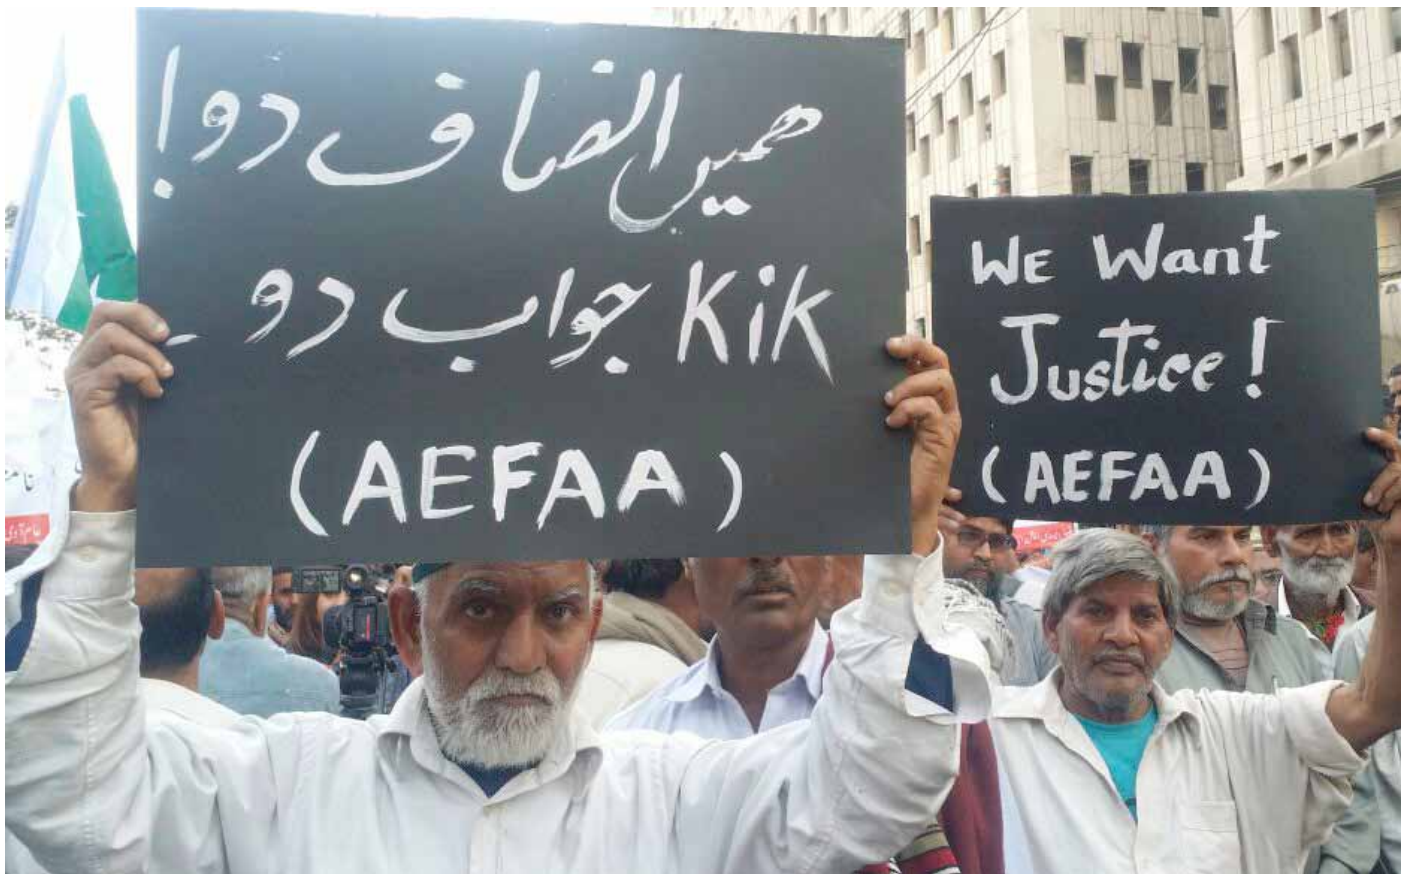 ہمیں انصاف دو!
Kik جواب دو۔
(AEFAA)
WE Want
Justice!
(AEFAA)